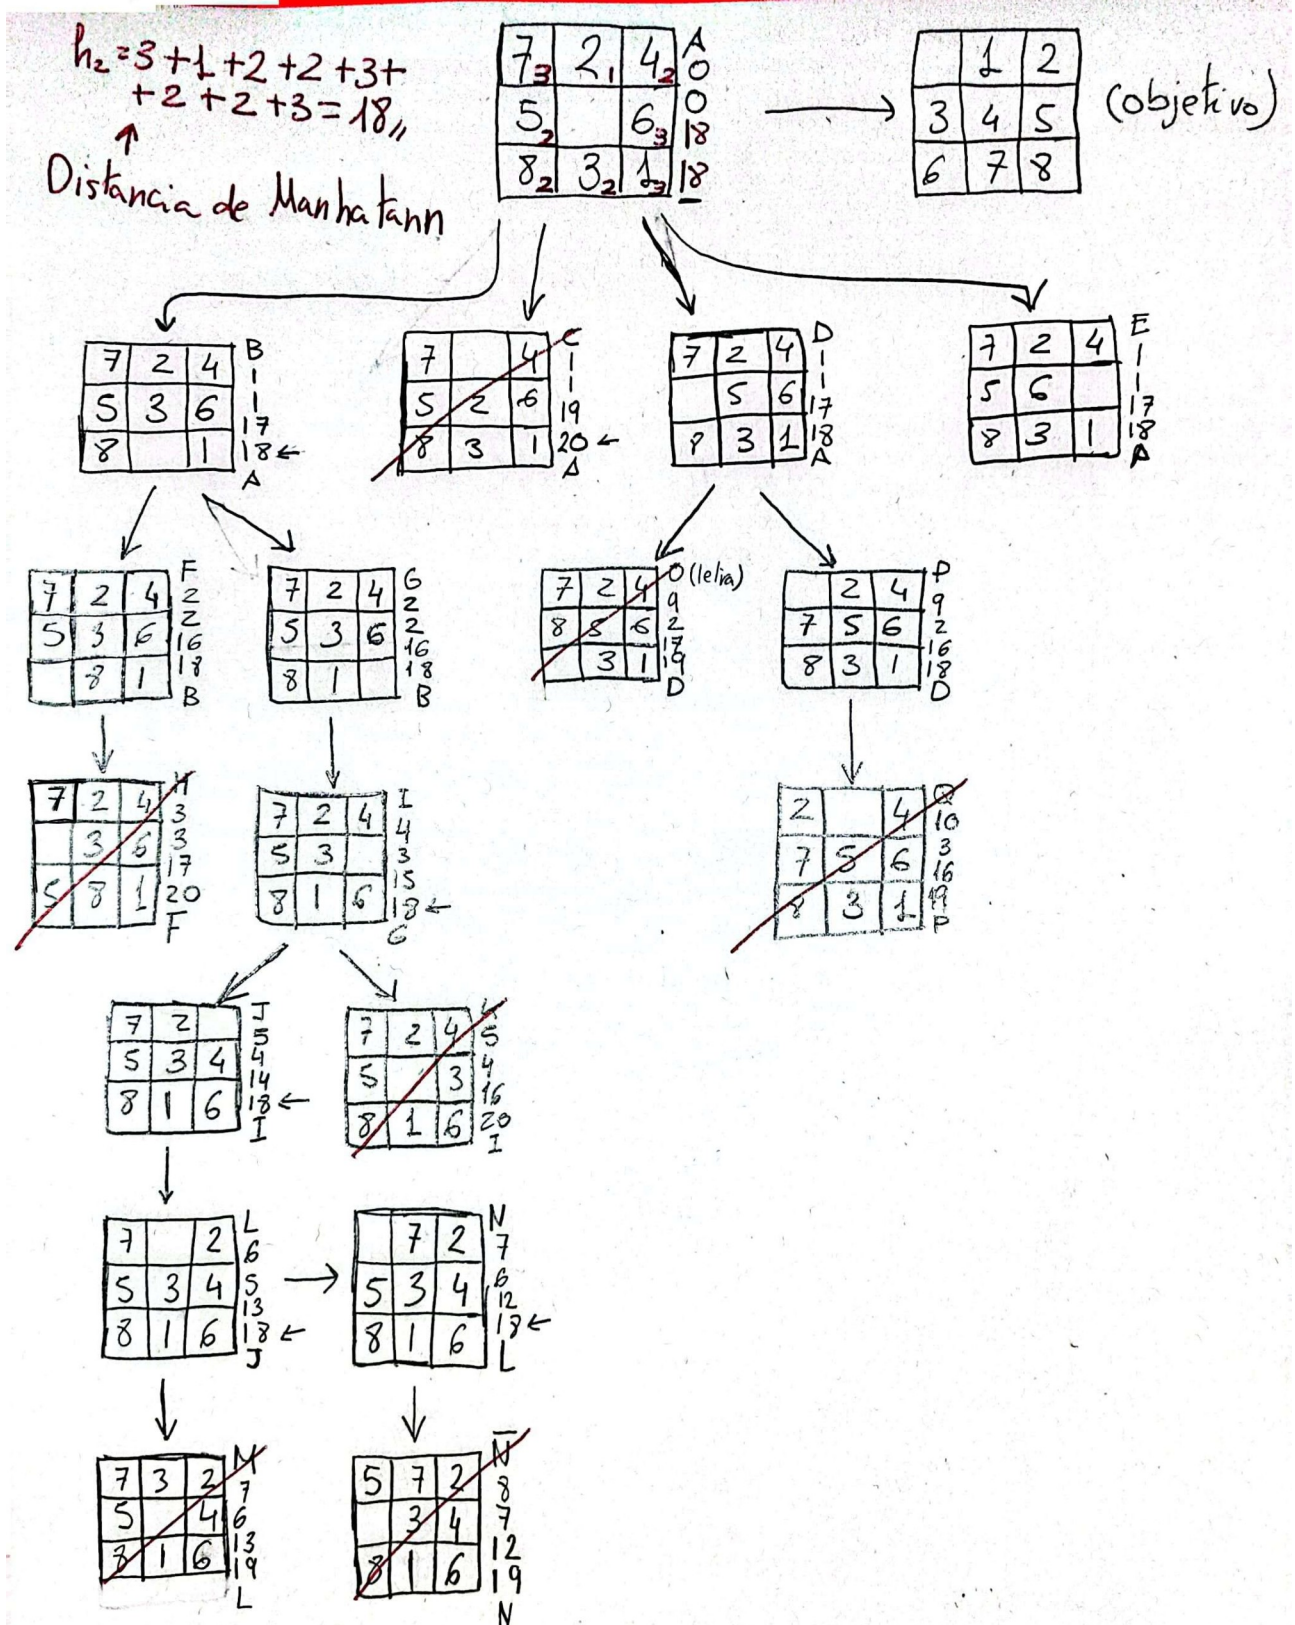 h₂=3+1+2+2+3+
+2+2+3=18,,
Distancia de Manhatann
7₃ 2₁ 4₂
5₂ 6₃
8₂ 3₂ 1₃
A
0
0
18
18
1 2
3 4 5
6 7 8
(objetivo)
7 2 4
5 3 6
8 1
B
1
1
17
18
A
7 4
5 2 6
8 3 1
C
1
1
19
20
A
7 2 4
5 6
8 3 1
D
1
1
17
18
A
7 2 4
5 6
8 3 1
E
1
1
17
18
A
7 2 4
5 3 6
8 1
F
2
2
16
18
B
7 2 4
5 3 6
8 1
G
2
2
16
18
B
7 2 4
8 5 6
3 1
O (letra)
9
2
17
19
D
2 4
7 5 6
8 3 1
P
9
2
16
18
D
7 2 4
3 6
5 8 1
H
3
3
17
20
F
7 2 4
5 3
8 1 6
I
4
3
15
18
G
2 4
7 5 6
8 3 1
Q
10
3
16
19
P
7 2
5 3 4
8 1 6
J
5
4
14
18
I
7 2 4
5 3
8 1 6
K
5
4
16
20
I
7 2
5 3 4
8 1 6
L
6
5
13
18
J
7 2
5 3 4
8 1 6
N
7
6
12
18
L
7 3 2
5 4
8 1 6
M
7
6
13
19
L
5 7 2
3 4
8 1 6
N̄
8
7
12
19
N